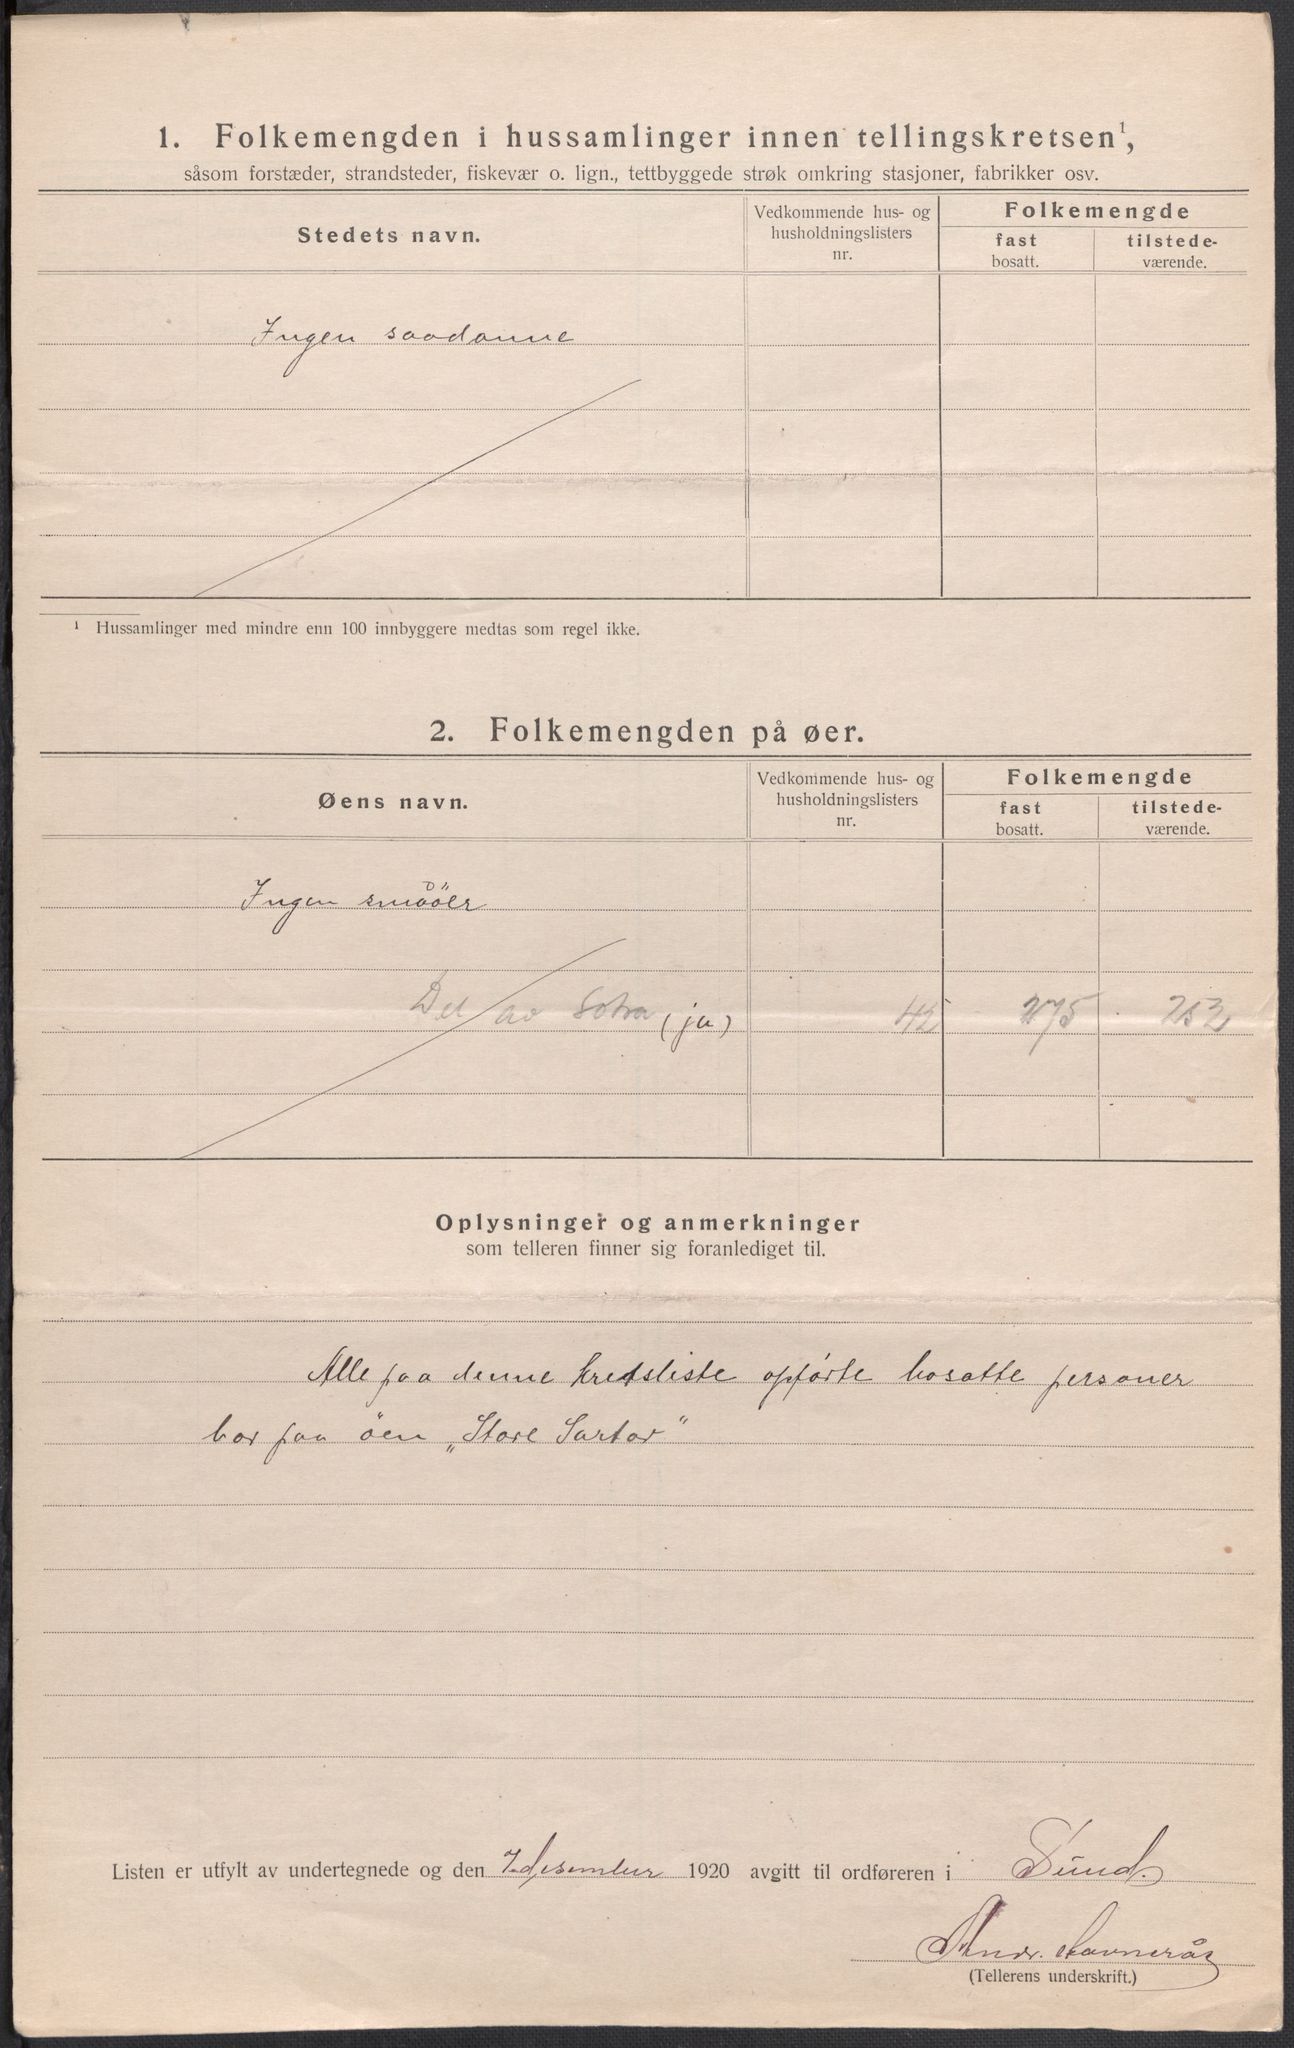 1. Folkemengden i hussamlinger innen tellingskretsen¹,
såsom forstæder, strandsteder, fiskevær o. lign., tettbyggede strøk omkring stasjoner, fabrikker osv.
Stedets navn.
Vedkommende hus- og
husholdningslisters
nr.
Folkemengde
fast
bosatt.
tilstede-
værende.
Ingen saadanne
¹ Hussamlinger med mindre enn 100 innbyggere medtas som regel ikke.
2. Folkemengden på øer.
Øens navn.
Vedkommende hus- og
husholdningslisters
nr.
Folkemengde
fast
bosatt.
tilstede-
værende.
Ingen småöer
Del av Sotra (ja) 42 275 252
Oplysninger og anmerkninger
som telleren finner sig foranlediget til.
Alle paa denne kredsliste opførte bosatte personer
bor paa öen „Store Sartor"
Listen er utfylt av undertegnede og den 7 desember 1920 avgitt til ordføreren i Sund.
Andr.
(Tellerens underskrift.)